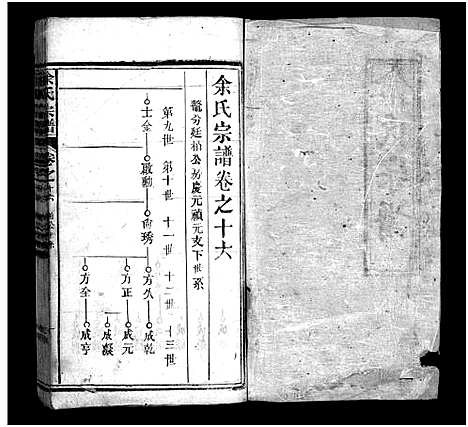 余氏宗譜卷之十六
一鼇分廷柏公房慶元禎元支下世系
第九世 第十世 十一世 十二世 十三世
士金 啟勳 尚琇 方久 咸乾
方正 咸元
咸凝
方全 咸亨
余氏宗譜
卷之十六